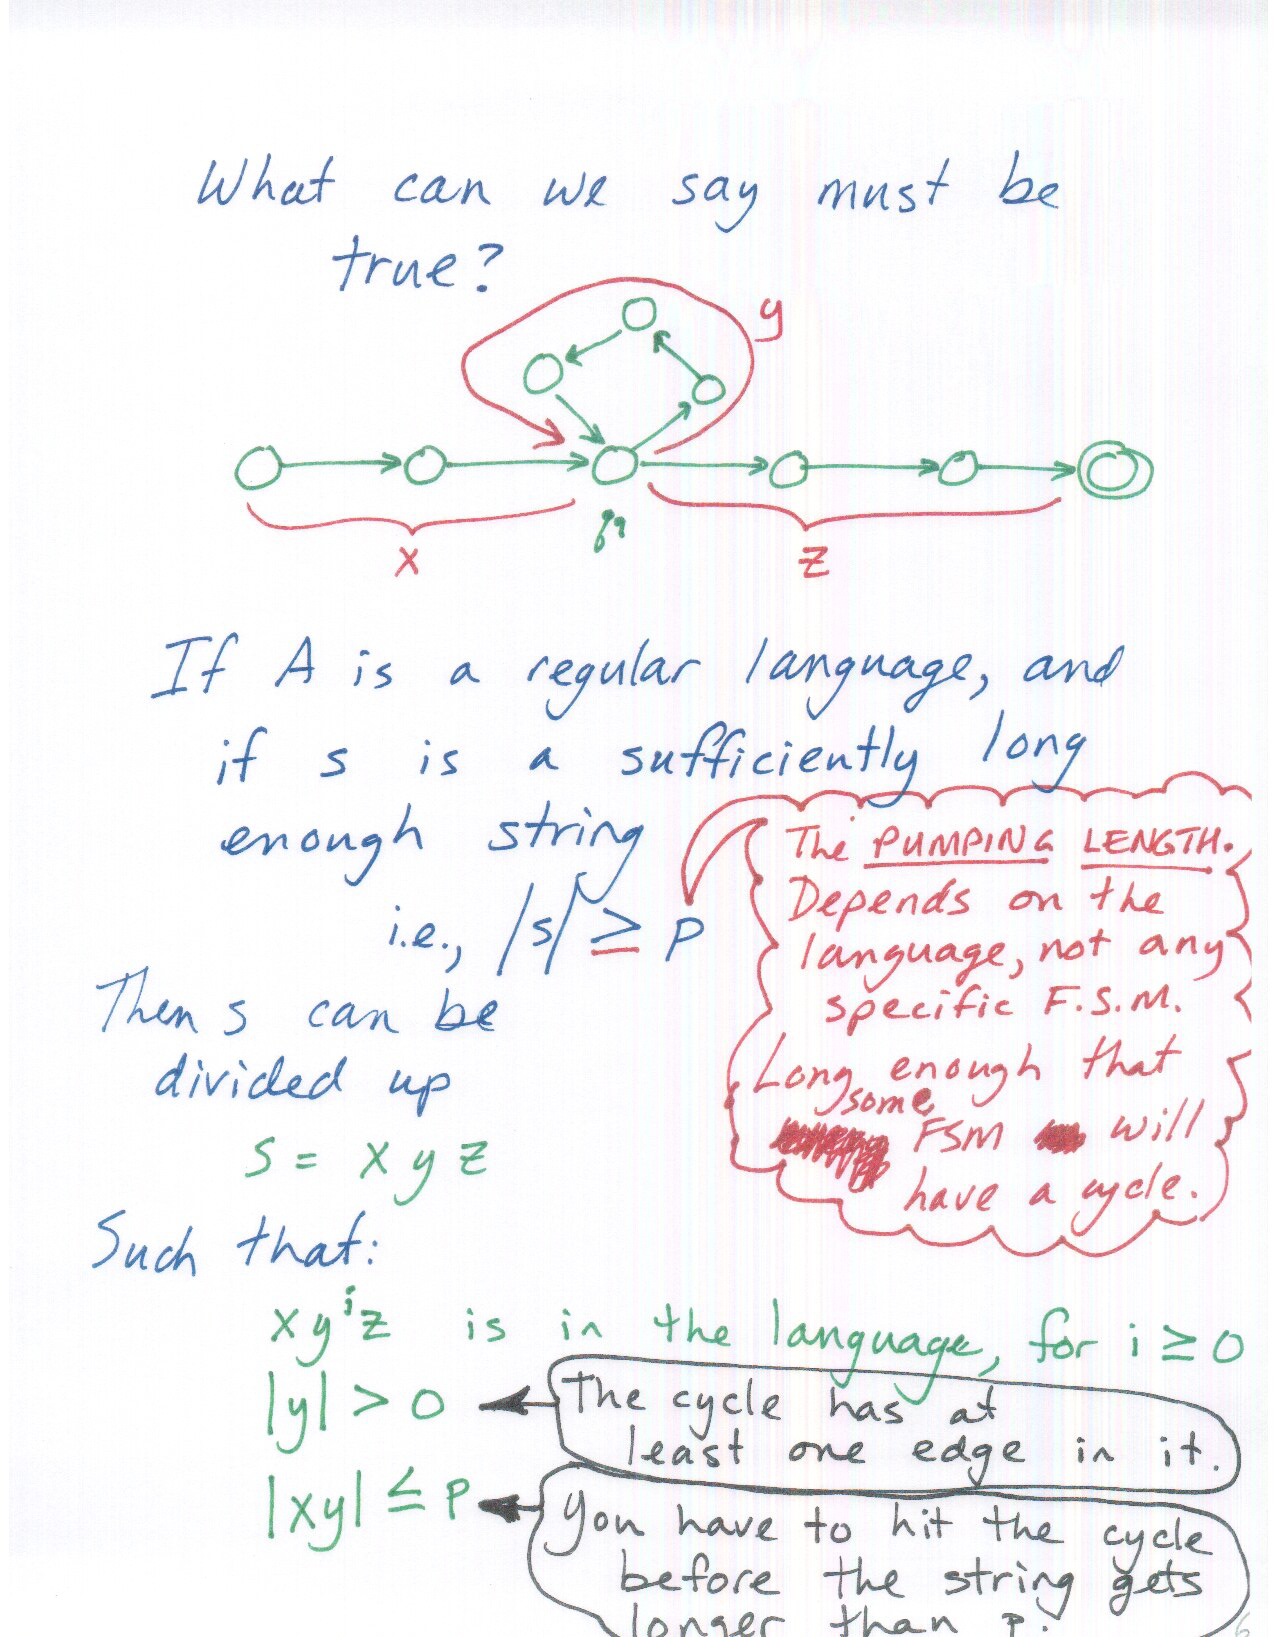 What can we say must be
true?
y
x
z
If A is a regular language, and
if s is a sufficiently long
enough string
i.e., |s| ≥ p
The PUMPING LENGTH.
Depends on the
language, not any
specific F.S.M.
Long enough that
some
FSM will
have a cycle.
Then s can be
divided up
s = x y z
Such that:
xyⁱz is in the language, for i ≥ 0
|y| > 0
The cycle has at
least one edge in it.
|xy| ≤ p
You have to hit the cycle
before the string gets
longer than p.
6